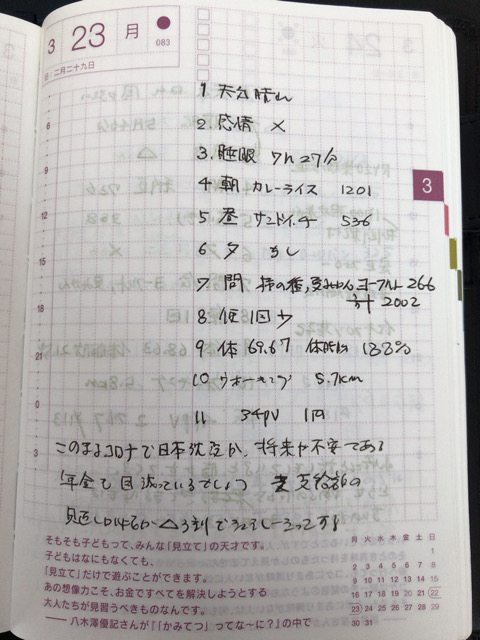 3 23 月
083
旧:二月二十九日
1 天気 晴れ
2 感情 ×
3. 睡眠 7h 27分
4 朝 カレーライス 1201
5 昼 サンドイッチ 536
6 夕 なし
7 間 柿の種, みかん ヨーグルト 266
計 2002
8 便 1回 少
9 体 69.67 体脂肪 18.8%
10 ウオーキング 5.7km
11 34PV 1円
このままコロナで日本沈没か、将来が不安である
年金も目減っているでしょう 支給額の
見直しは
△3割で
6
9
12
15
18
21
0
3
3
そもそも子どもって、みんな「見立て」の天才です。
子どもはなにもなくても、
「見立て」だけで遊ぶことができます。
あの想像力こそ、お金ですべてを解決しようとする
大人たちが見習うべきものなんです。
──八木澤優記さんが『「かみてつ」ってな〜に?』の中で
月 火 水 木 金 土 日
1
2 3 4 5 6 7 8
9 10 11 12 13 14 15
16 17 18 19 20 21 22
23 24 25 26 27 28 29
30 31